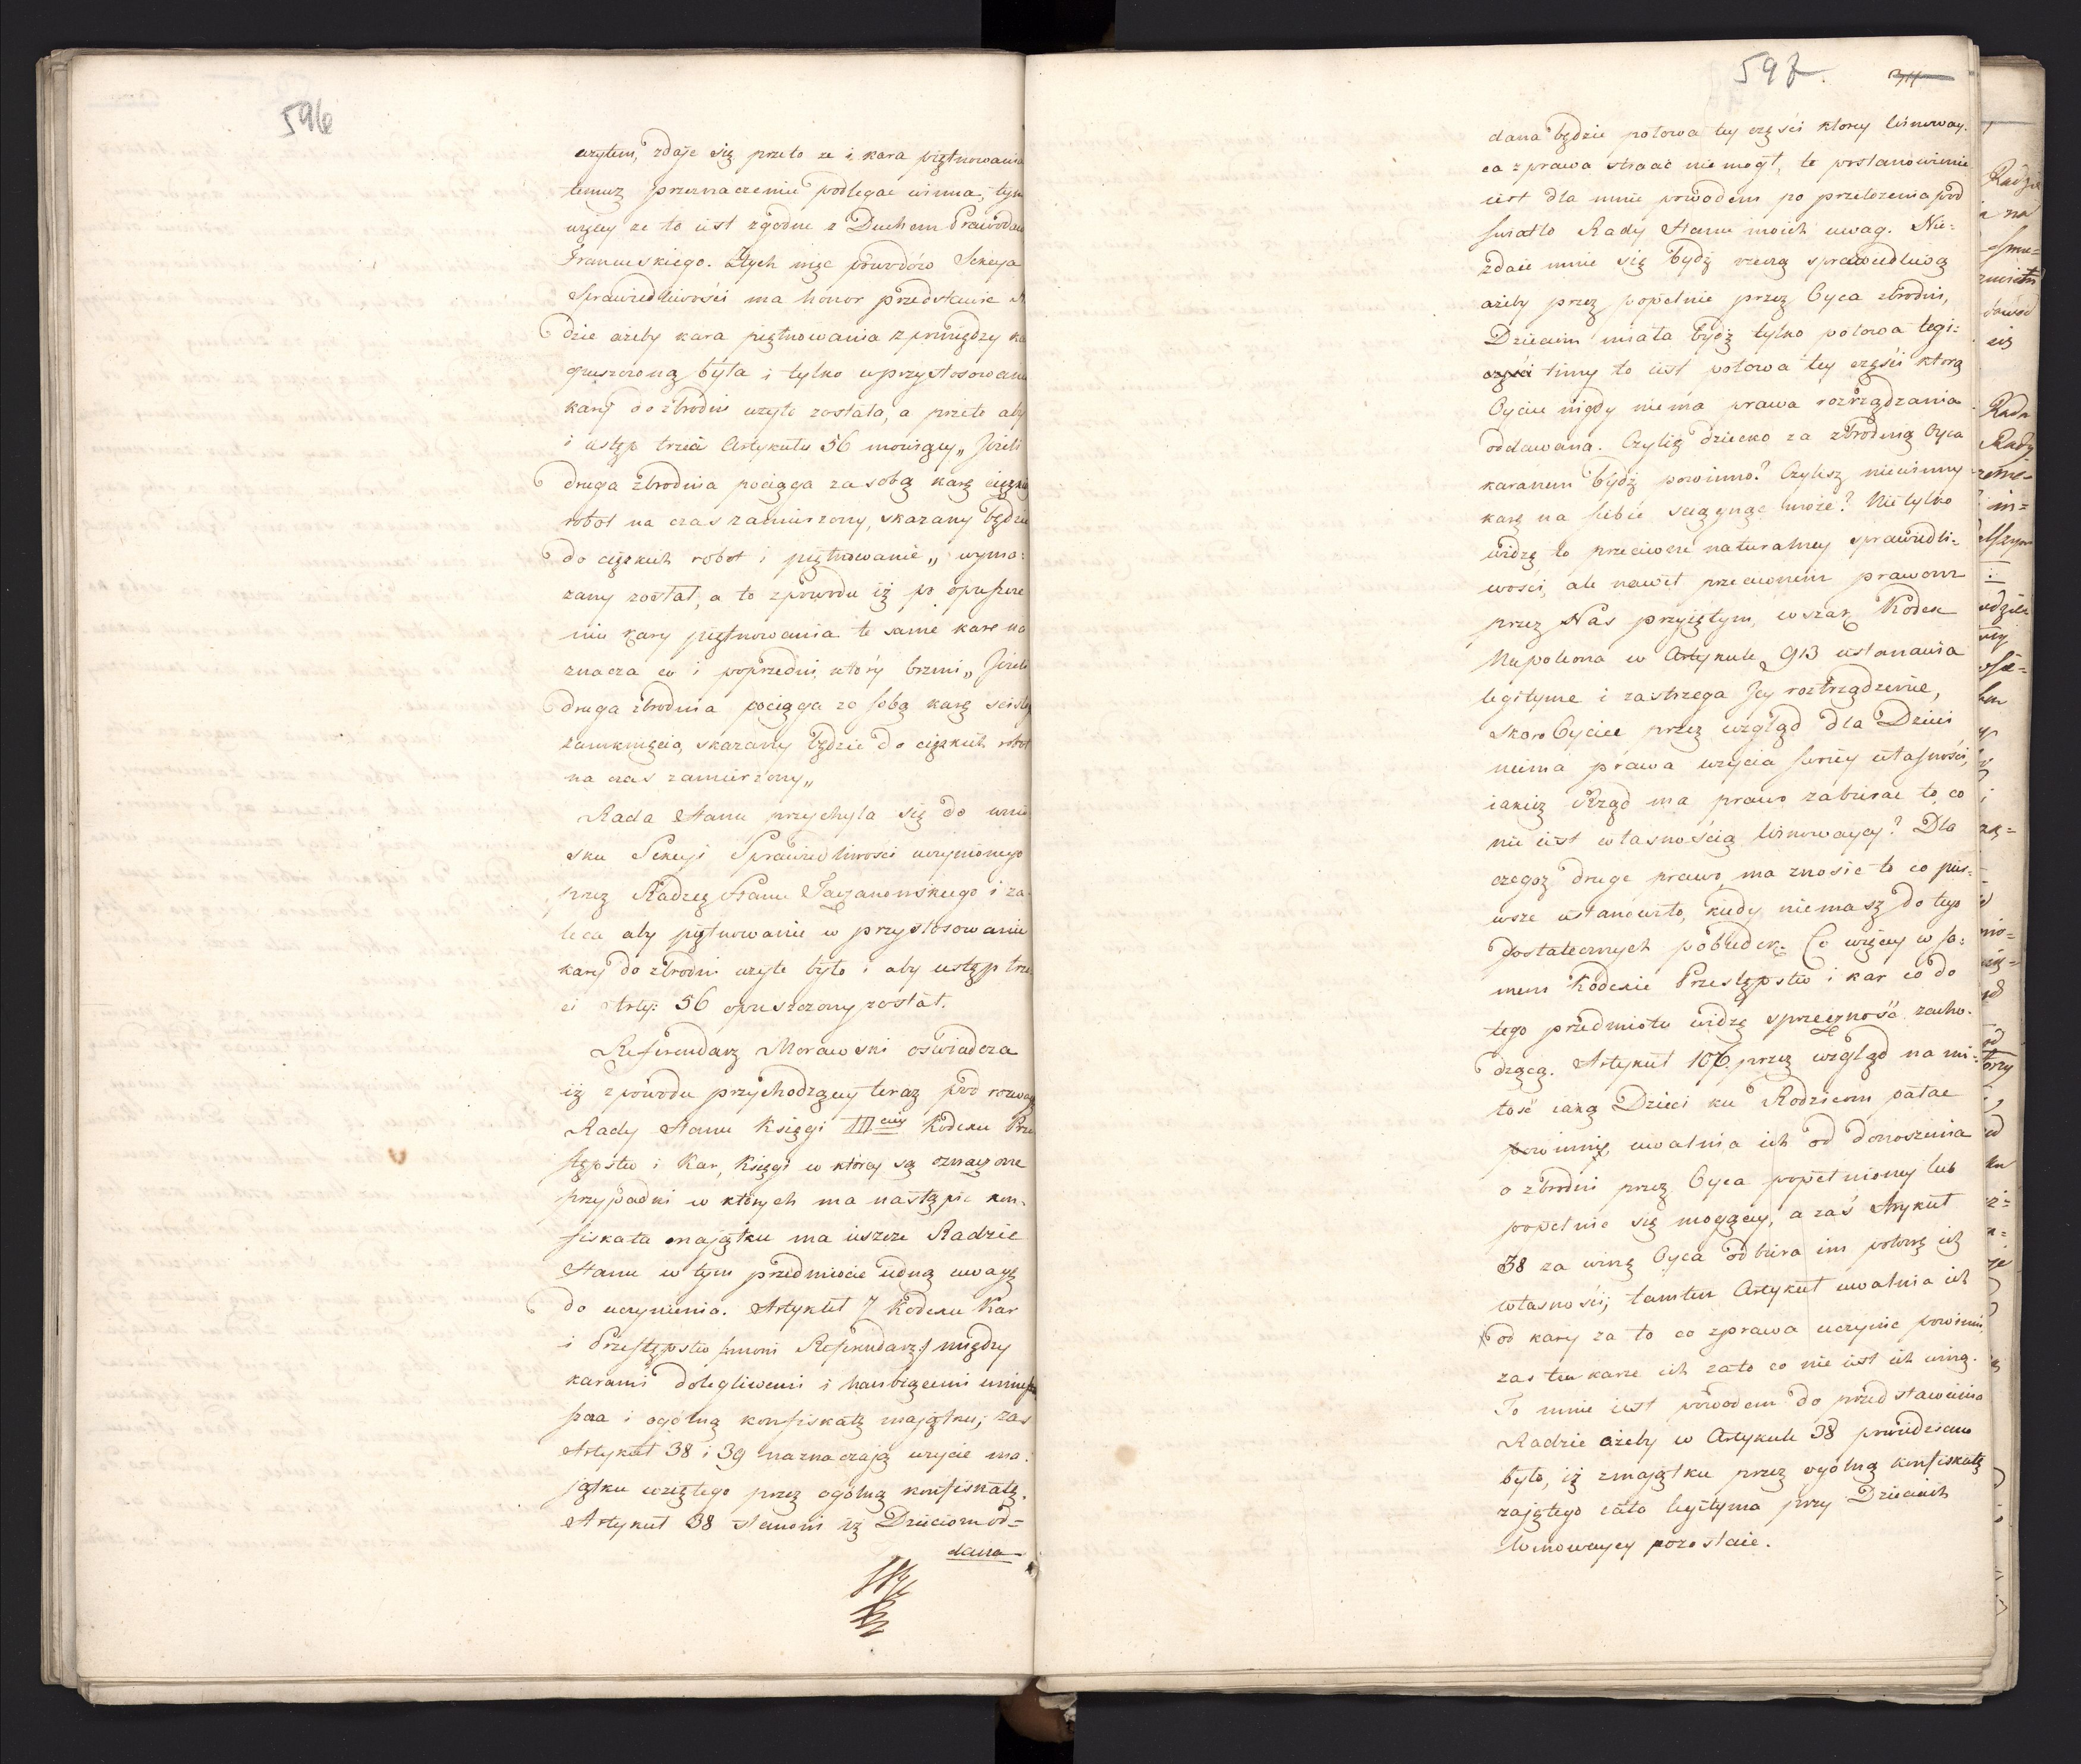 596
użytem, zdaje się przeto ze i kara piętnowania
temuz przeznaczeniu podlegac winna, tym
więcy ze to iest zgodne z Duchem Prawodaw
Francuskiego. Ztych więc powodów Sekcya
Sprawiedliwości ma honor przedstawić Ra
dzie ażeby kara piętnowania z pomiędzy ka
opuszczoną była i tylko w przystosowaniu
kary do zbrodni użyte zostało, a przeto aby
i ustęp trzeci Artykułu 56 mowiący „Jeżeli
druga zbrodnia pociąga za sobą karę ciężkich
robot na czas zamierzony, skazany będzie
do ciężkich robot i piętnowanie„ wyma:
zany został, a to zpowodu iż po opuszcze
niu kary piętnowania te same karę na
znacza co i poprzedni, który brzmi „Jeżeli
druga zbrodnia pociąga za sobą karę scisły
zamknięcia, skazany będzie do ciężkich robot
na czas zamierzony„
Rada Stanu przychyla się do wnio
sku Sekcyi Sprawiedliwości uczynionego
przez Radzcę Stanu Taczanowskiego i za-
leca aby piętnowanie w przystosowaniu
kary do zbrodni użyte było i aby ustęp trze
ci Arty: 56 opuszczony został.
Referendarz Morawski oświadcza
iż zpowodu przychodzącey teraz pod rozwagę
Rady Stanu Księgi III ciey Kodexu Prze
stępstw i Kar, Księgi w którey są oznaczone
przypadki w których ma nastąpić kon-
fiskata maiątku ma ieszcze Radzie
Stanu w tym przedmiocie iedną uwagę
do uczynienia. Artykuł 7 Kodexu Kar
i Przestępstw /: mowi Referendarz :/ między
karami dolegliwemi i hanbiącemi umiesz
sza i ogólną konfiskatę maiątku; zas
Artykuł 38 i 39 naznaczają użycie ma:
jątku wziętego przez ogólną konfiskatę.
Artykuł 38 stanowi iż Dzieciom od=
dana
597.
dana będzie połowa tey części ktorey Winoway-
ca z prawa stracić nie mogł, te postanowienie
iest dla mnie powodem po przełożenia pod
swiatło Rady Stanu moich uwag. Nie-
zdaie mnie się bydź rzeczą sprawiedliwą
ażeby przez popełnie przez Oyca zbrodni,
Dzieciom miała bydź tylko połowa legi:
timy to iest połowa tey części którą
Oyciec nigdy niema prawa rozrządzania
oddawana. Czyliż dziecko za zbrodnią Oyca
karanem bydź powinno? Czylisz niewinny
karę na siebie sciągnąc może? Nietylko
widzę to przeciwne naturalney sprawiedli-
wości, ale nawet przeciwnem prawom
przez Nas przyiętym, wszak Kodex
Napoleona w Artykule 913 ustanawia
legityme i zastrzega Jey roztrządzenie,
skoro Oyciec przez wzgląd dla Dzieci
niema prawa użycia swoiey własności,
iakiż Rząd ma prawo zabierac to, co
nie iest własnością Winowaycy? Dla
czegoż drugę prawo ma znosic to co pier-
wsze ustanowiło, kiedy niemasz do tego
dostatecznych pobudek. Co więcey w sa:
mem Kodexie Przestępstw i kar co do
tego przedmiotu widzę sprzeczność zacho-
dzącą. Artykuł 106. przez wzgląd na mi-
łość iaką Dzieci ku Rodzicom pałac
powinnię, uwalnia ich od donoszenia
o zbrodni przez Oyca popełnioney lub
popełnic się mogącey, a zaś Arykuł
38 za winę Oyca odbiera im połowę ich
własności; tamten Artykuł uwalnia ich
od kary za to co zprawa uczynic powinni,
zas ten karze ich zato co nie iest ich winą.
To mnie iest powodem do przedstawienia
Radzie ażeby w Artykule 38 prwidziano
było, iż zmaiątku przez ogólną konfiskatę
zajętego cała legityma przy Dzieciach
Winowaycy pozostaie.